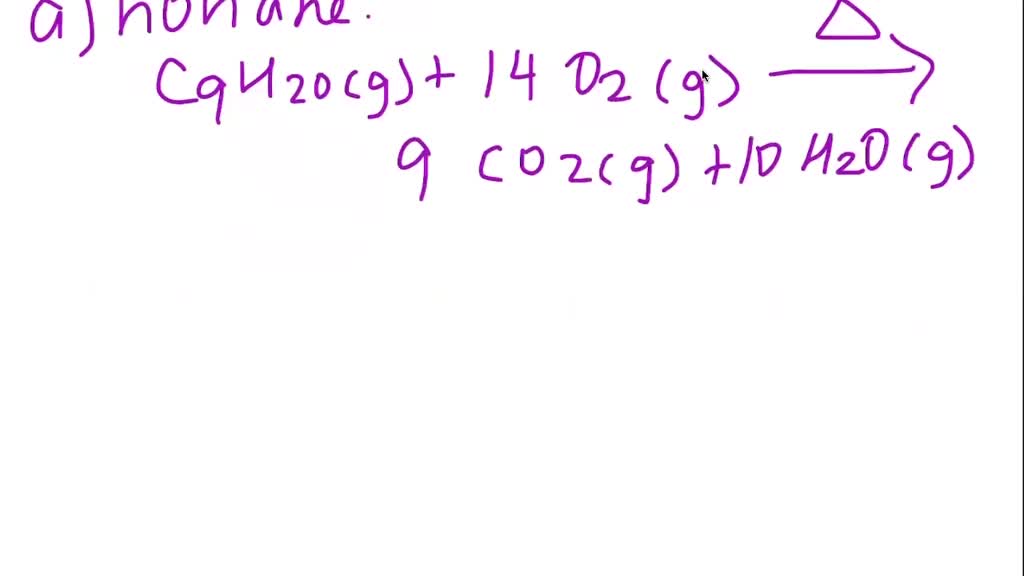 a) nonane.
C9H20(g) + 14 O2 (g) Δ→
9 CO2(g) + 10 H2O(g)